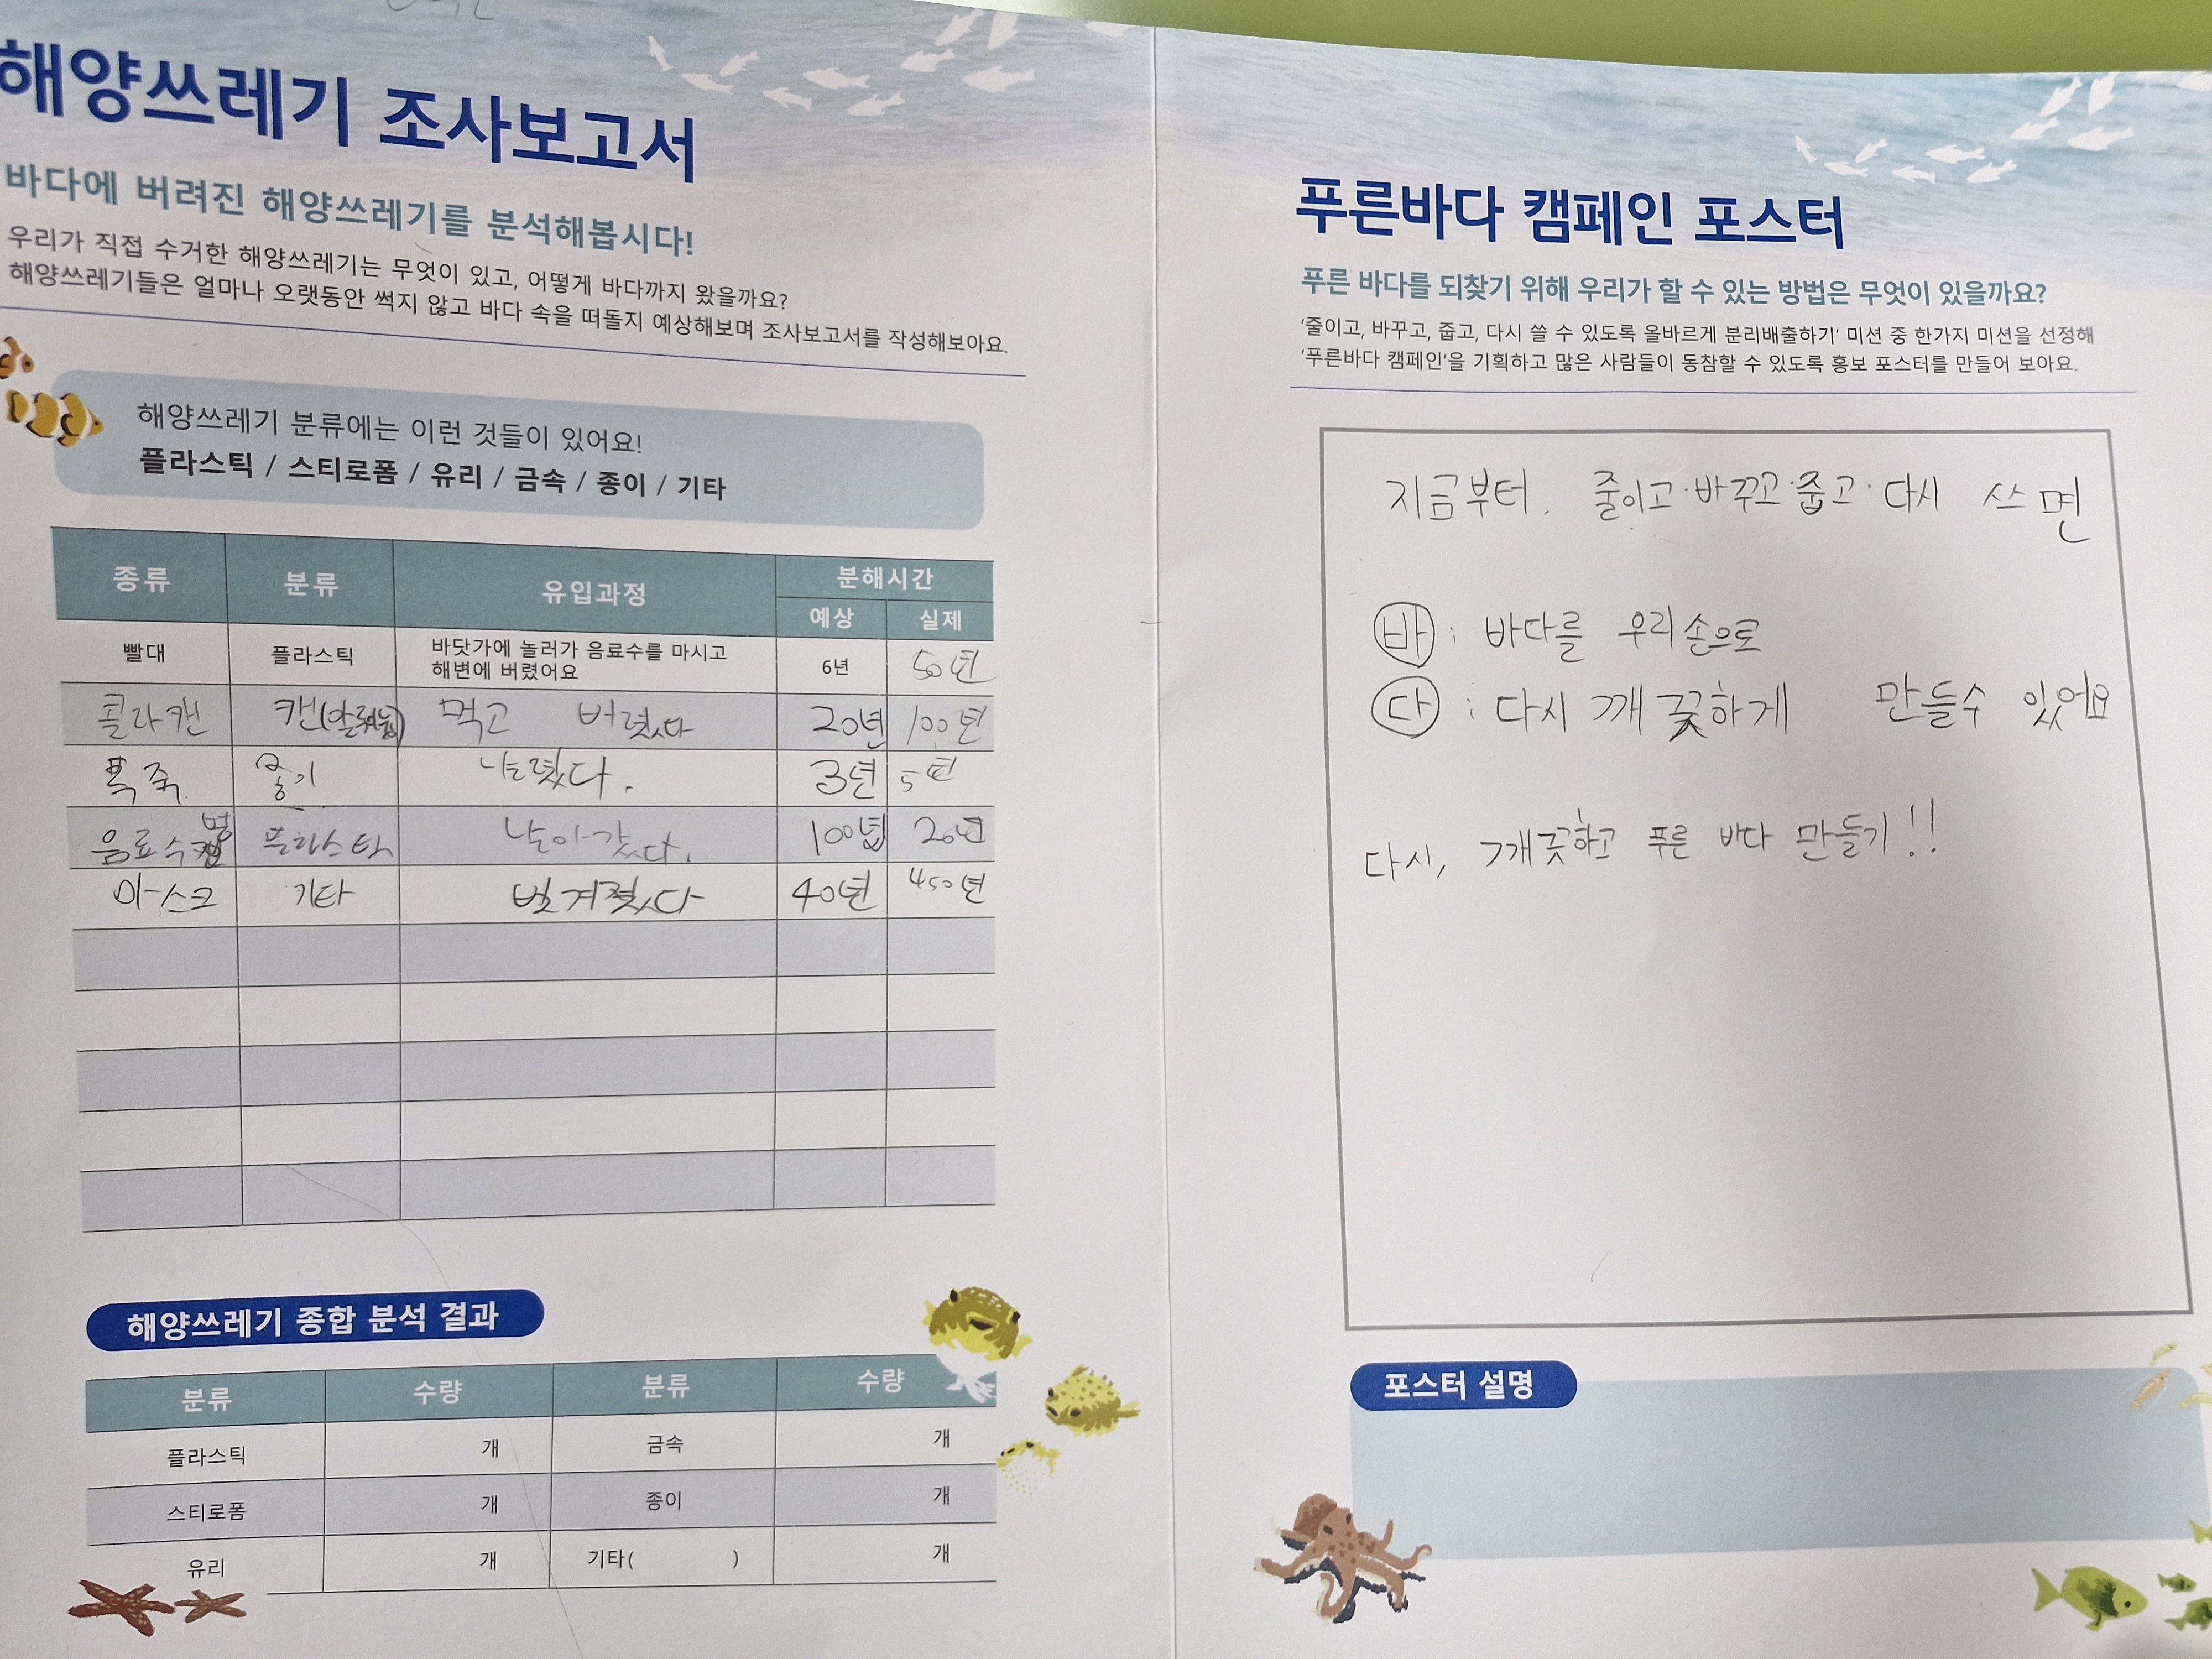 해양쓰레기 조사보고서
바다에 버려진 해양쓰레기를 분석해봅시다!
우리가 직접 수거한 해양쓰레기는 무엇이 있고, 어떻게 바다까지 왔을까요?
해양쓰레기들은 얼마나 오랫동안 썩지 않고 바다 속을 떠돌지 예상해보며 조사보고서를 작성해보아요.
해양쓰레기 분류에는 이런 것들이 있어요!
플라스틱 / 스티로폼 / 유리 / 금속 / 종이 / 기타
종류 분류 유입과정 분해시간
예상 실제
빨대 플라스틱 바닷가에 놀러가 음료수를 마시고 6년 50년
해변에 버렸어요
콜라캔 캔 먹고 버렸다 20년 100년
폭죽 3년 5년
음료수병 플라스틱 날아갔다. 20년
마스크 기타 벗겨졌다 40년 450년
해양쓰레기 종합 분석 결과
분류 수량 분류 수량
플라스틱 개 금속 개
스티로폼 개 종이 개
유리 개 기타( ) 개
푸른바다 캠페인 포스터
푸른 바다를 되찾기 위해 우리가 할 수 있는 방법은 무엇이 있을까요?
'줄이고, 바꾸고, 줍고, 다시 쓸 수 있도록 올바르게 분리배출하기' 미션 중 한가지 미션을 선정해
'푸른바다 캠페인'을 기획하고 많은 사람들이 동참할 수 있도록 홍보 포스터를 만들어 보아요.
지금부터, 줄이고·바꾸고·줍고·다시 쓰면
바 : 바다를 우리손으로
다 : 다시 깨끛하게 만들수 있어요
다시, 깨끗하고 푸른 바다 만들기!!
포스터 설명